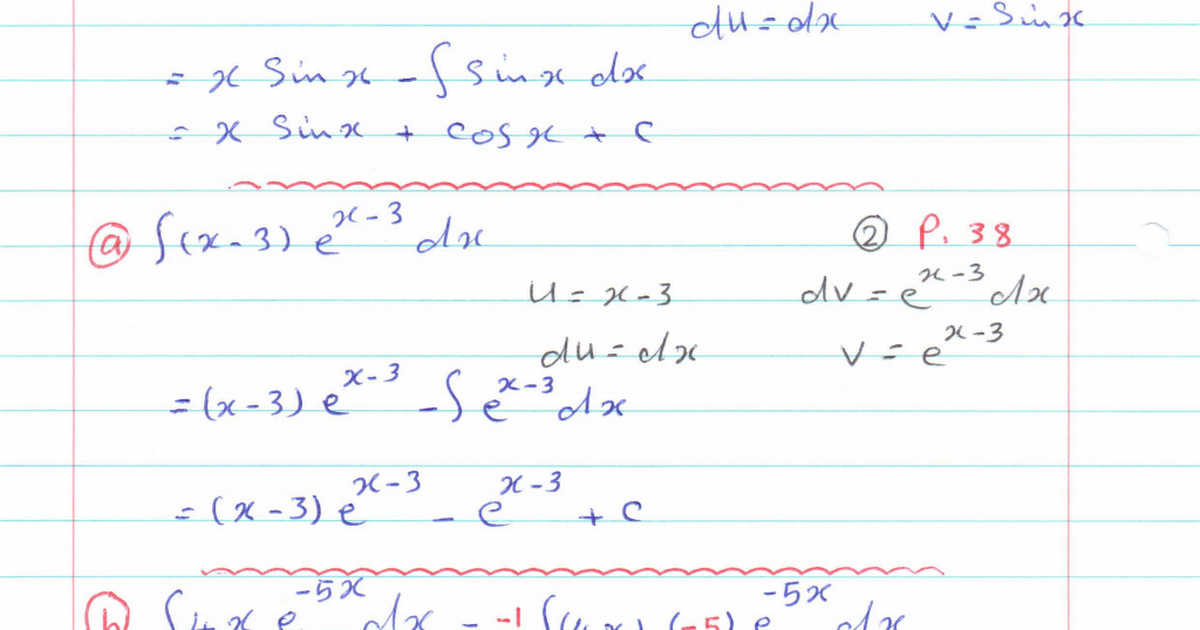 du = dx v = Sin x
= x Sin x - ∫ Sin x dx
= x Sin x + cos x + c
ⓐ ∫(x-3) e^{x-3} dx ② P. 38
u = x-3 dv = e^{x-3} dx
du = dx v = e^{x-3}
= (x-3) e^{x-3} - ∫ e^{x-3} dx
= (x-3) e^{x-3} - e^{x-3} + c
ⓑ ∫ 4x e^{-5x} dx = -1 ∫(4x) (-5) e^{-5x} dx